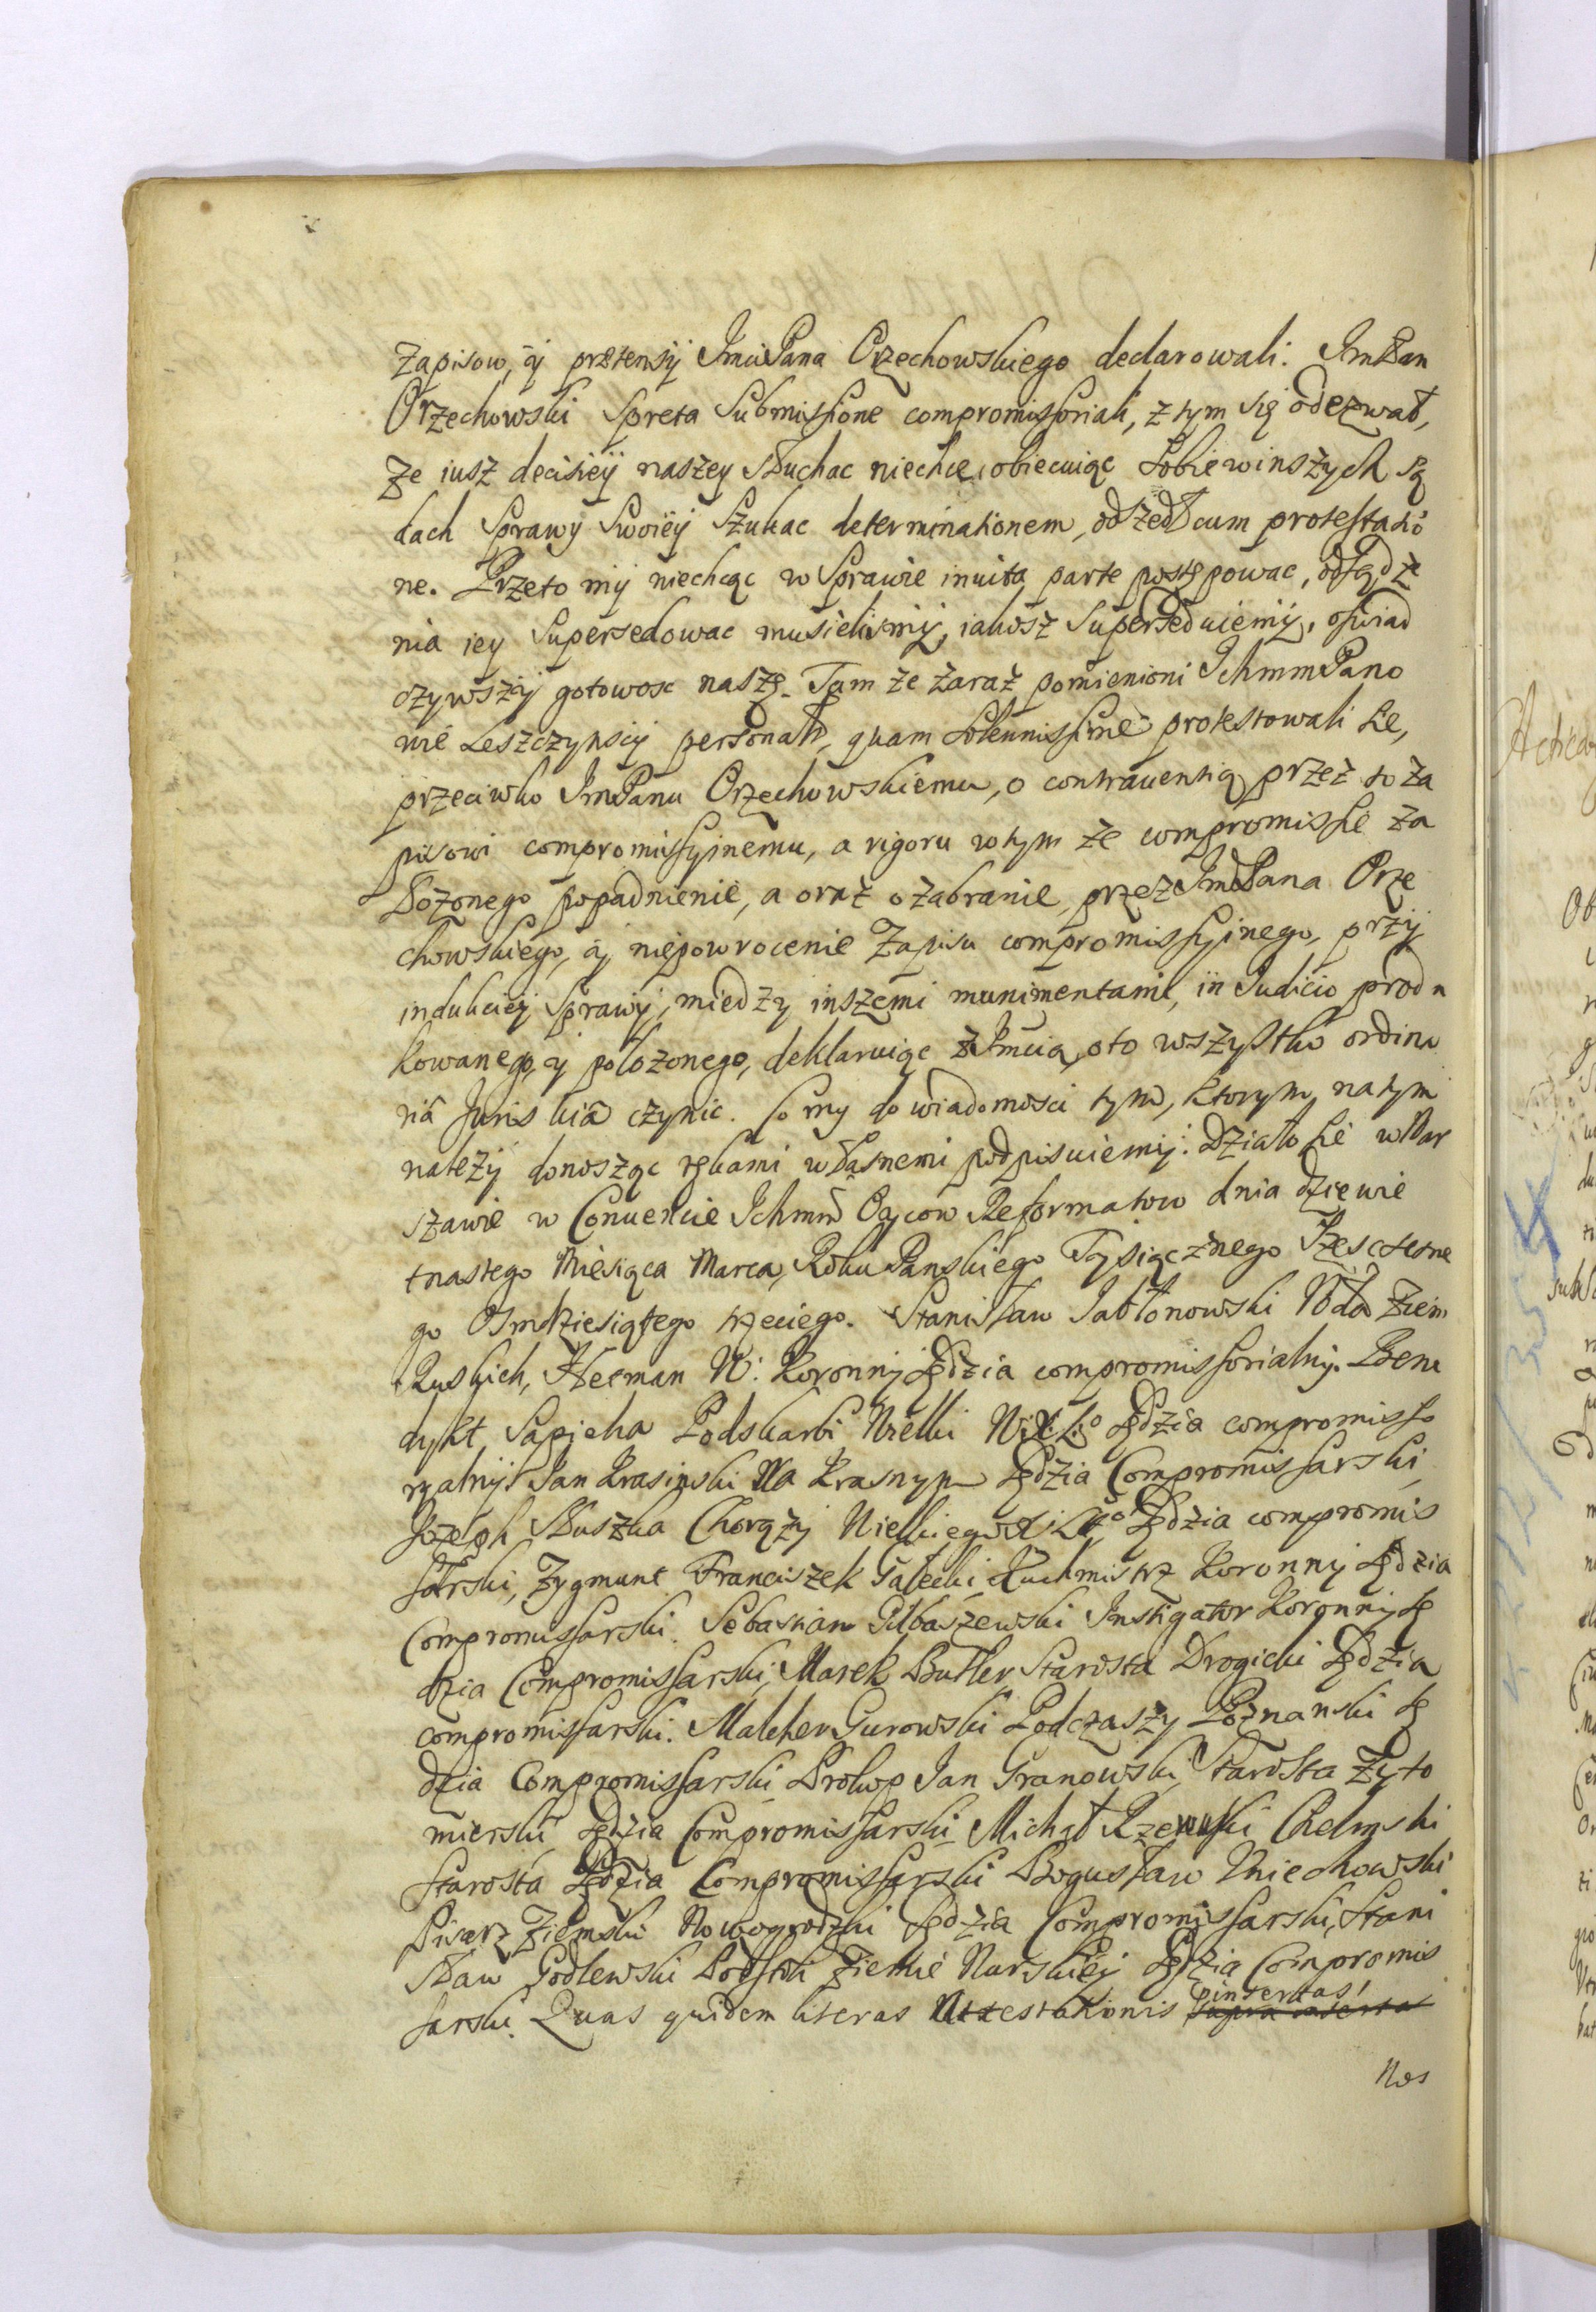 Zapisow, ÿ prætensÿ Jmci Pana Orzechowskiego declarowali. Jm Pan
Orzechowski Spreta Submissione compromissoriali, z tym się odezwał,
że iusz decisieÿ naszey słuchac niechce, obiecuiąc sobie winszych Są
dach Sprawy Swoieÿ Szukac determinationem, odszedł cum protestatio
ne. Przeto mÿ niechcąc w Sprawie inuita parte postępowac, odsądze
nia iey Supersedowac musielismÿ, iakosz Superseduiemÿ, oswiad
czywszÿ gotowosc naszę. Tam że zaraz pomienioni Ichmm Pano
wie Leszczynscÿ personalr, quam Solennissime protestowali sie,
przeciwko Jm Panu Orzechowskiemu, o contrauentią przez to za
pisowi compromissyinemu, a rigoru w tym że compromissie za
łożonego popadnienie, a oraz o zabranie, przez Jm Pana Orze
chowskiego, ÿ niepowrocenie Zapisu compromissyinego, przÿ
indukcieÿ Sprawÿ, miedzy inszemi munimentami, in Judicio produ
kowanego, ÿ polozonego, deklaruiąc z Jmcią, oto wszystko ordina
ria Juris via czynic. Co my do wiadomosci tym, ktorym, na tym
nalezÿ donosząc rękami własnemi podpisuiemÿ. Działo sie w War
szawie w Conuencie Ichmm Oycow Reformatow dnia dziewie
tnastego Miesiąca Marca, Roku Panskiego Tysiącznego Szescsetne
go Osmdziesiątego trzeciego. Stanisław Jabłonowski Wda Ziem
Ruskich, Hetman W: Koronnÿ Sędzia compromissorialnÿ. Bene
dykt Sapieha Podskarbi Wielki W: X: Lgo Sędzia compromisso
ryalnÿ Jan Krasinski Na Krasnym Sędzia Compromissarski,
Jozeph Słuszka Chorązÿ Wielkiego X Lgo Sędzia compromis
sarski, Zygmunt Franciszek Gałecki Kuchmistrz Koronnÿ Sędzia
Compromissarski. Sebastian Gilbaszewski Instigator Koronnÿ Sę
dzia Compromissarski, Marek Butler Starosta Drogicki Sędzia
compromissarski. Malcher Gurowski Podczaszy Poznanski Sę
dzia Compromissarski Prokop Jan Granowski, Starosta Zyto
mierski Sędzia Compromissarski Michał Rzewuski Chelmski
Starosta Sędzia Compromissarski Bogusław Uniechowski
Pisarz Ziemski Nowogrodzki Sędzia Compromissarski, Stani
sław Godlewski Podstoli Ziemie Nurskieÿ Sędzia Compromis
sarski. Quas quidem literas Attestationis supra inserta
pinsertas!
Nos